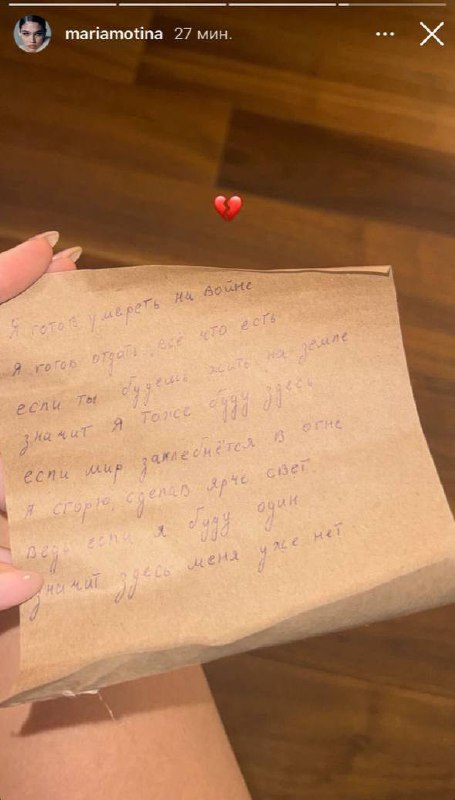 mariamotina 27 мин.
Я готов умереть на войне
Я готов отдать всё что есть
если ты будешь жить на земле
значит я тоже буду здесь
если мир захлебнётся в огне
Я сгорю, сделав ярче свет.
Ведь если я буду один
значит здесь меня уже нет